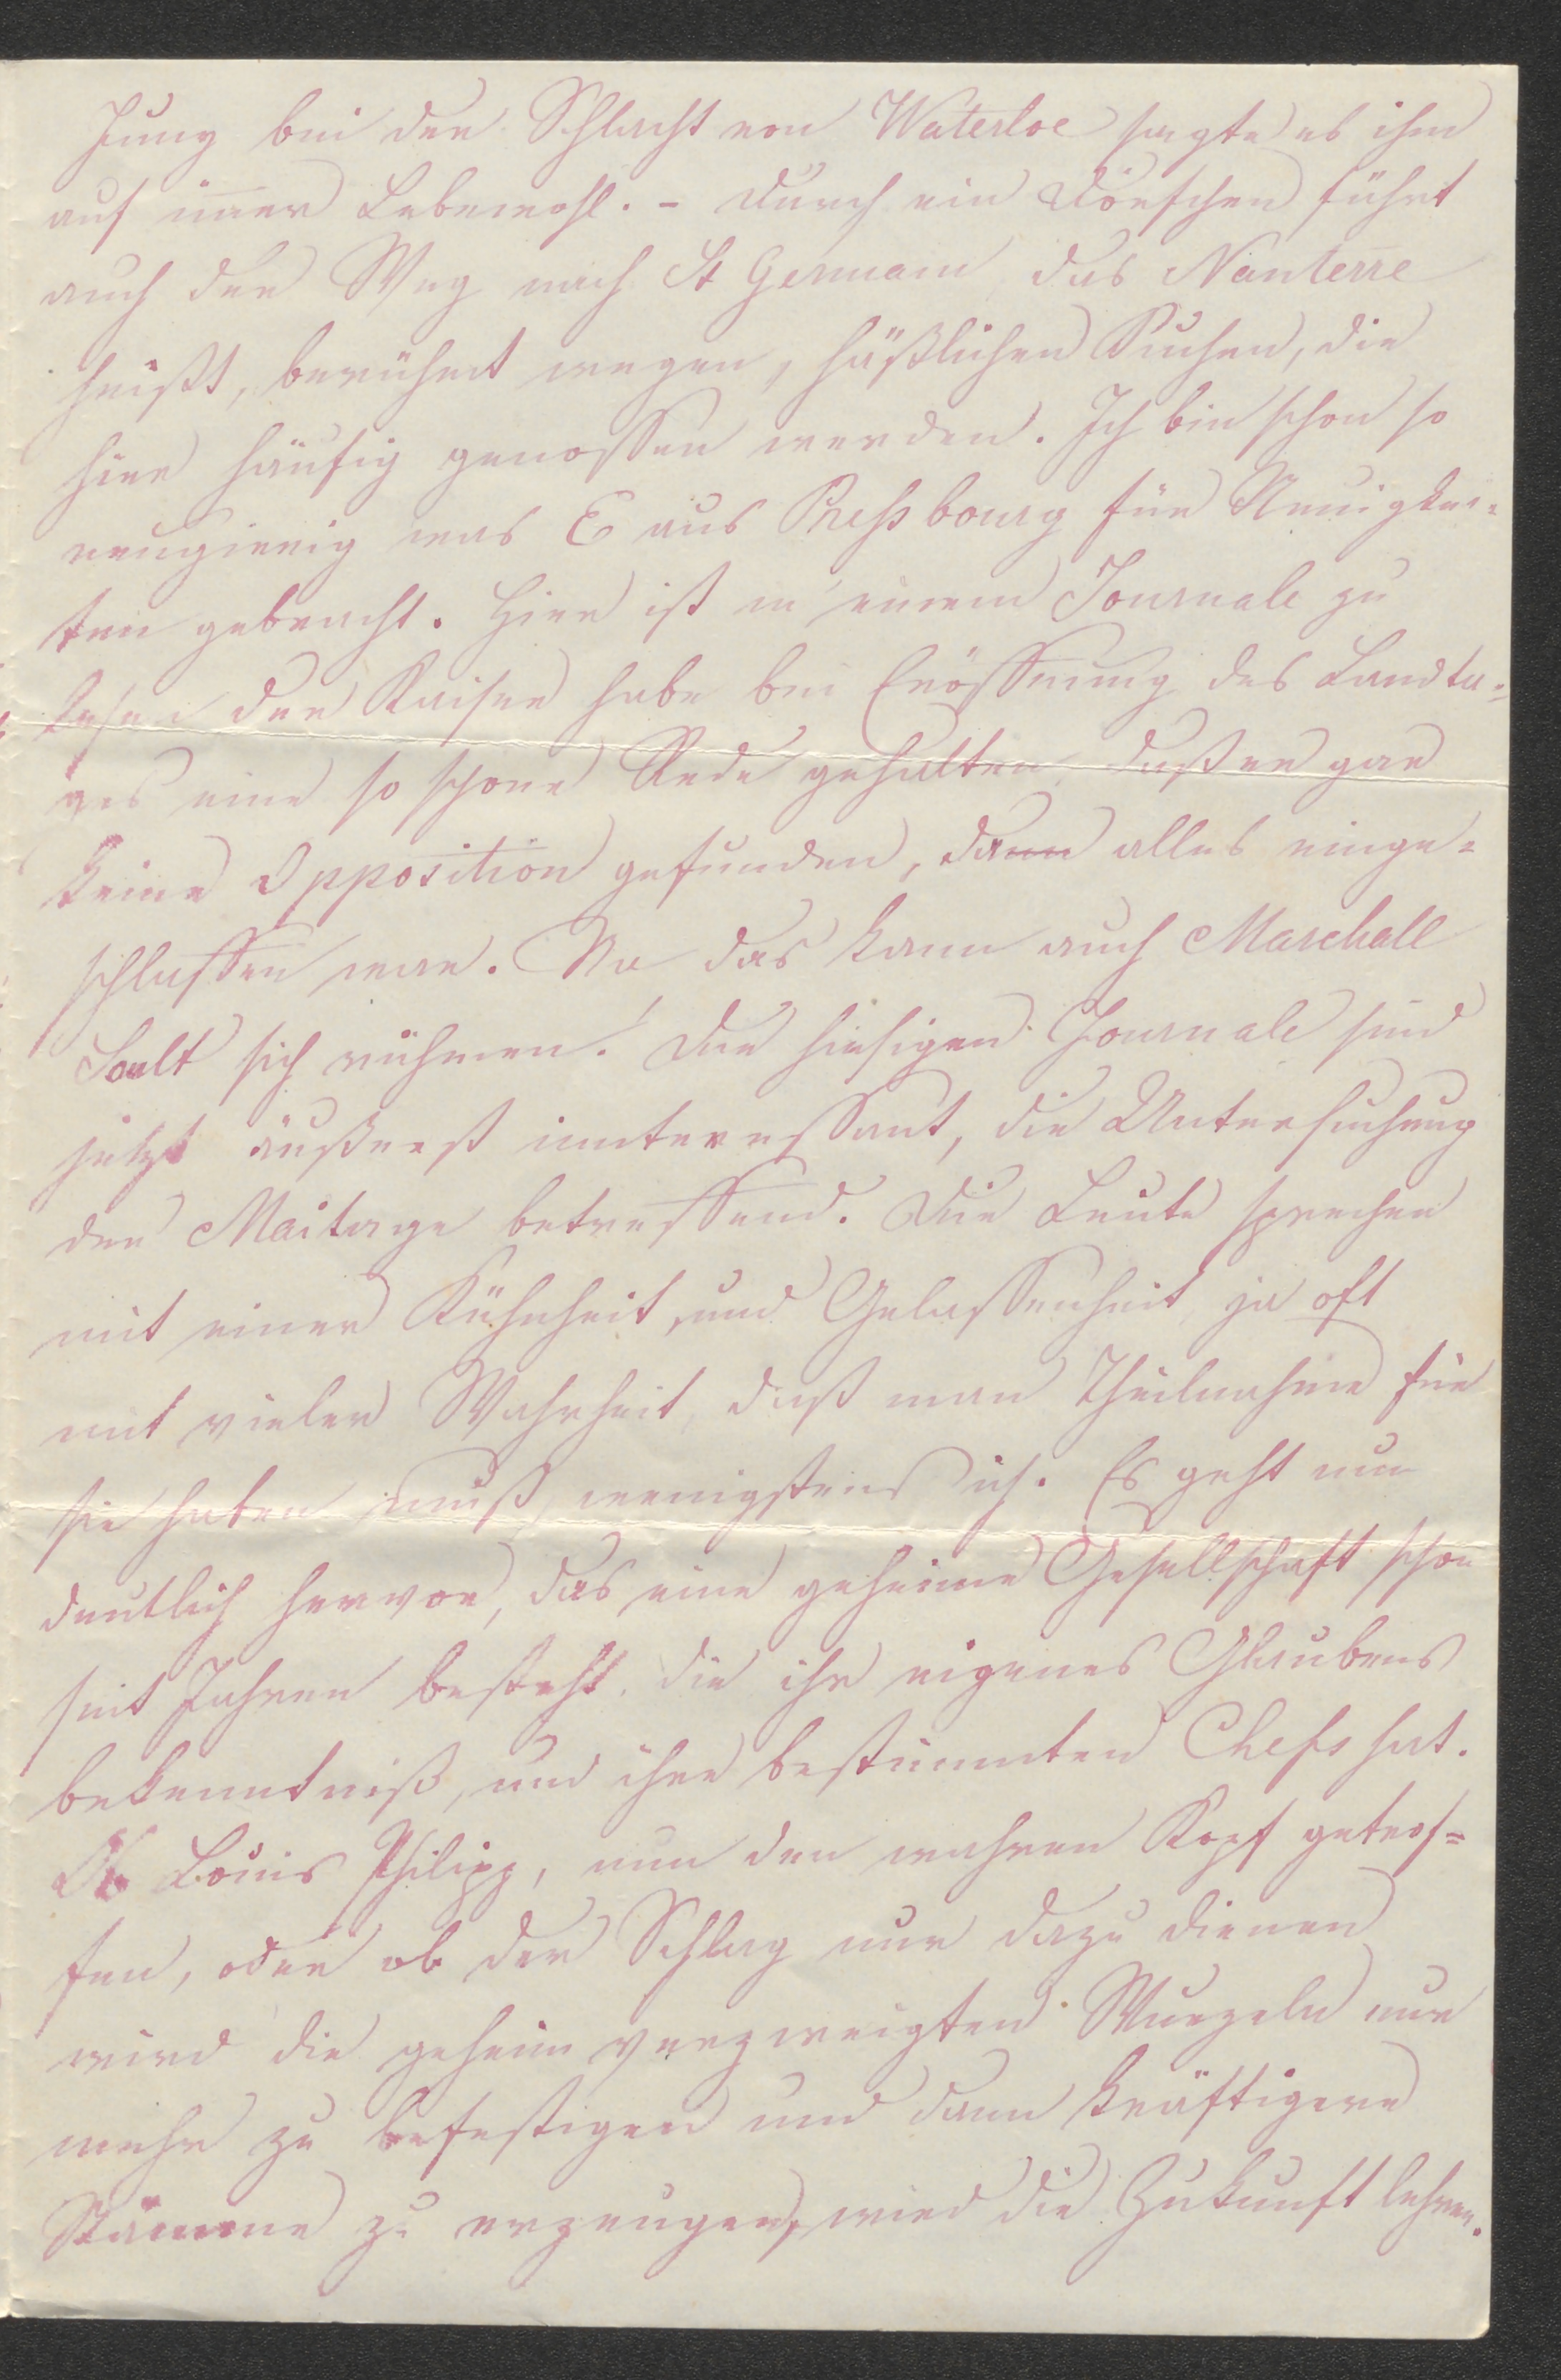 ging bei der Schlacht von Waterloe sagte es ihm
auf im̄er Lebewohl. - Durch ein Dörfchen führt
auch der Weg nach St Germain, das Nanterre
heißt, berühmt wegen, häßlichen Kuchen, die
hier häufig genossen werden. Ich bin schon so
neugierig was E aus Pressbourg für Neuigkei-
ten gebracht. Hier ist in einem Journale zu
lesen der Kaiser habe bei Eröffnung des Landta-
ges eine so schöne Rede gehalten, daß er gar
keine Opposition gefunden, dann alles einge-
schlaffen war. Na das kann auch Marchall
Soult sich rühmen! Die hiesigen Journale sind
jetzt äußerst innteressant, die Untersuchung
der Maitage betreffend. Die Leute sprechen
mit einer Kühnheit, und Gelassenheit, ja oft
mit vieler Wahrheit, daß man Theilnahme für
sie haben muß, wenigstens ich. Es geht nun
deutlich hervor, das eine geheime Gesellschaft schon
seit Jahren besteht, die ihr eigenes Glaubens
bekenntniß, und ihre bestimmten Chefs hat.
Ob Louis Philipp, nun den wahren Kopf getrof-
fen, oder ob der Schlag nur dazu dienen
wird die geheim verzweigten Wurzeln nur
mehr zu befestigen und dann kräftigere
Stämme zu erzeugen, wird die Zukunft lehren.